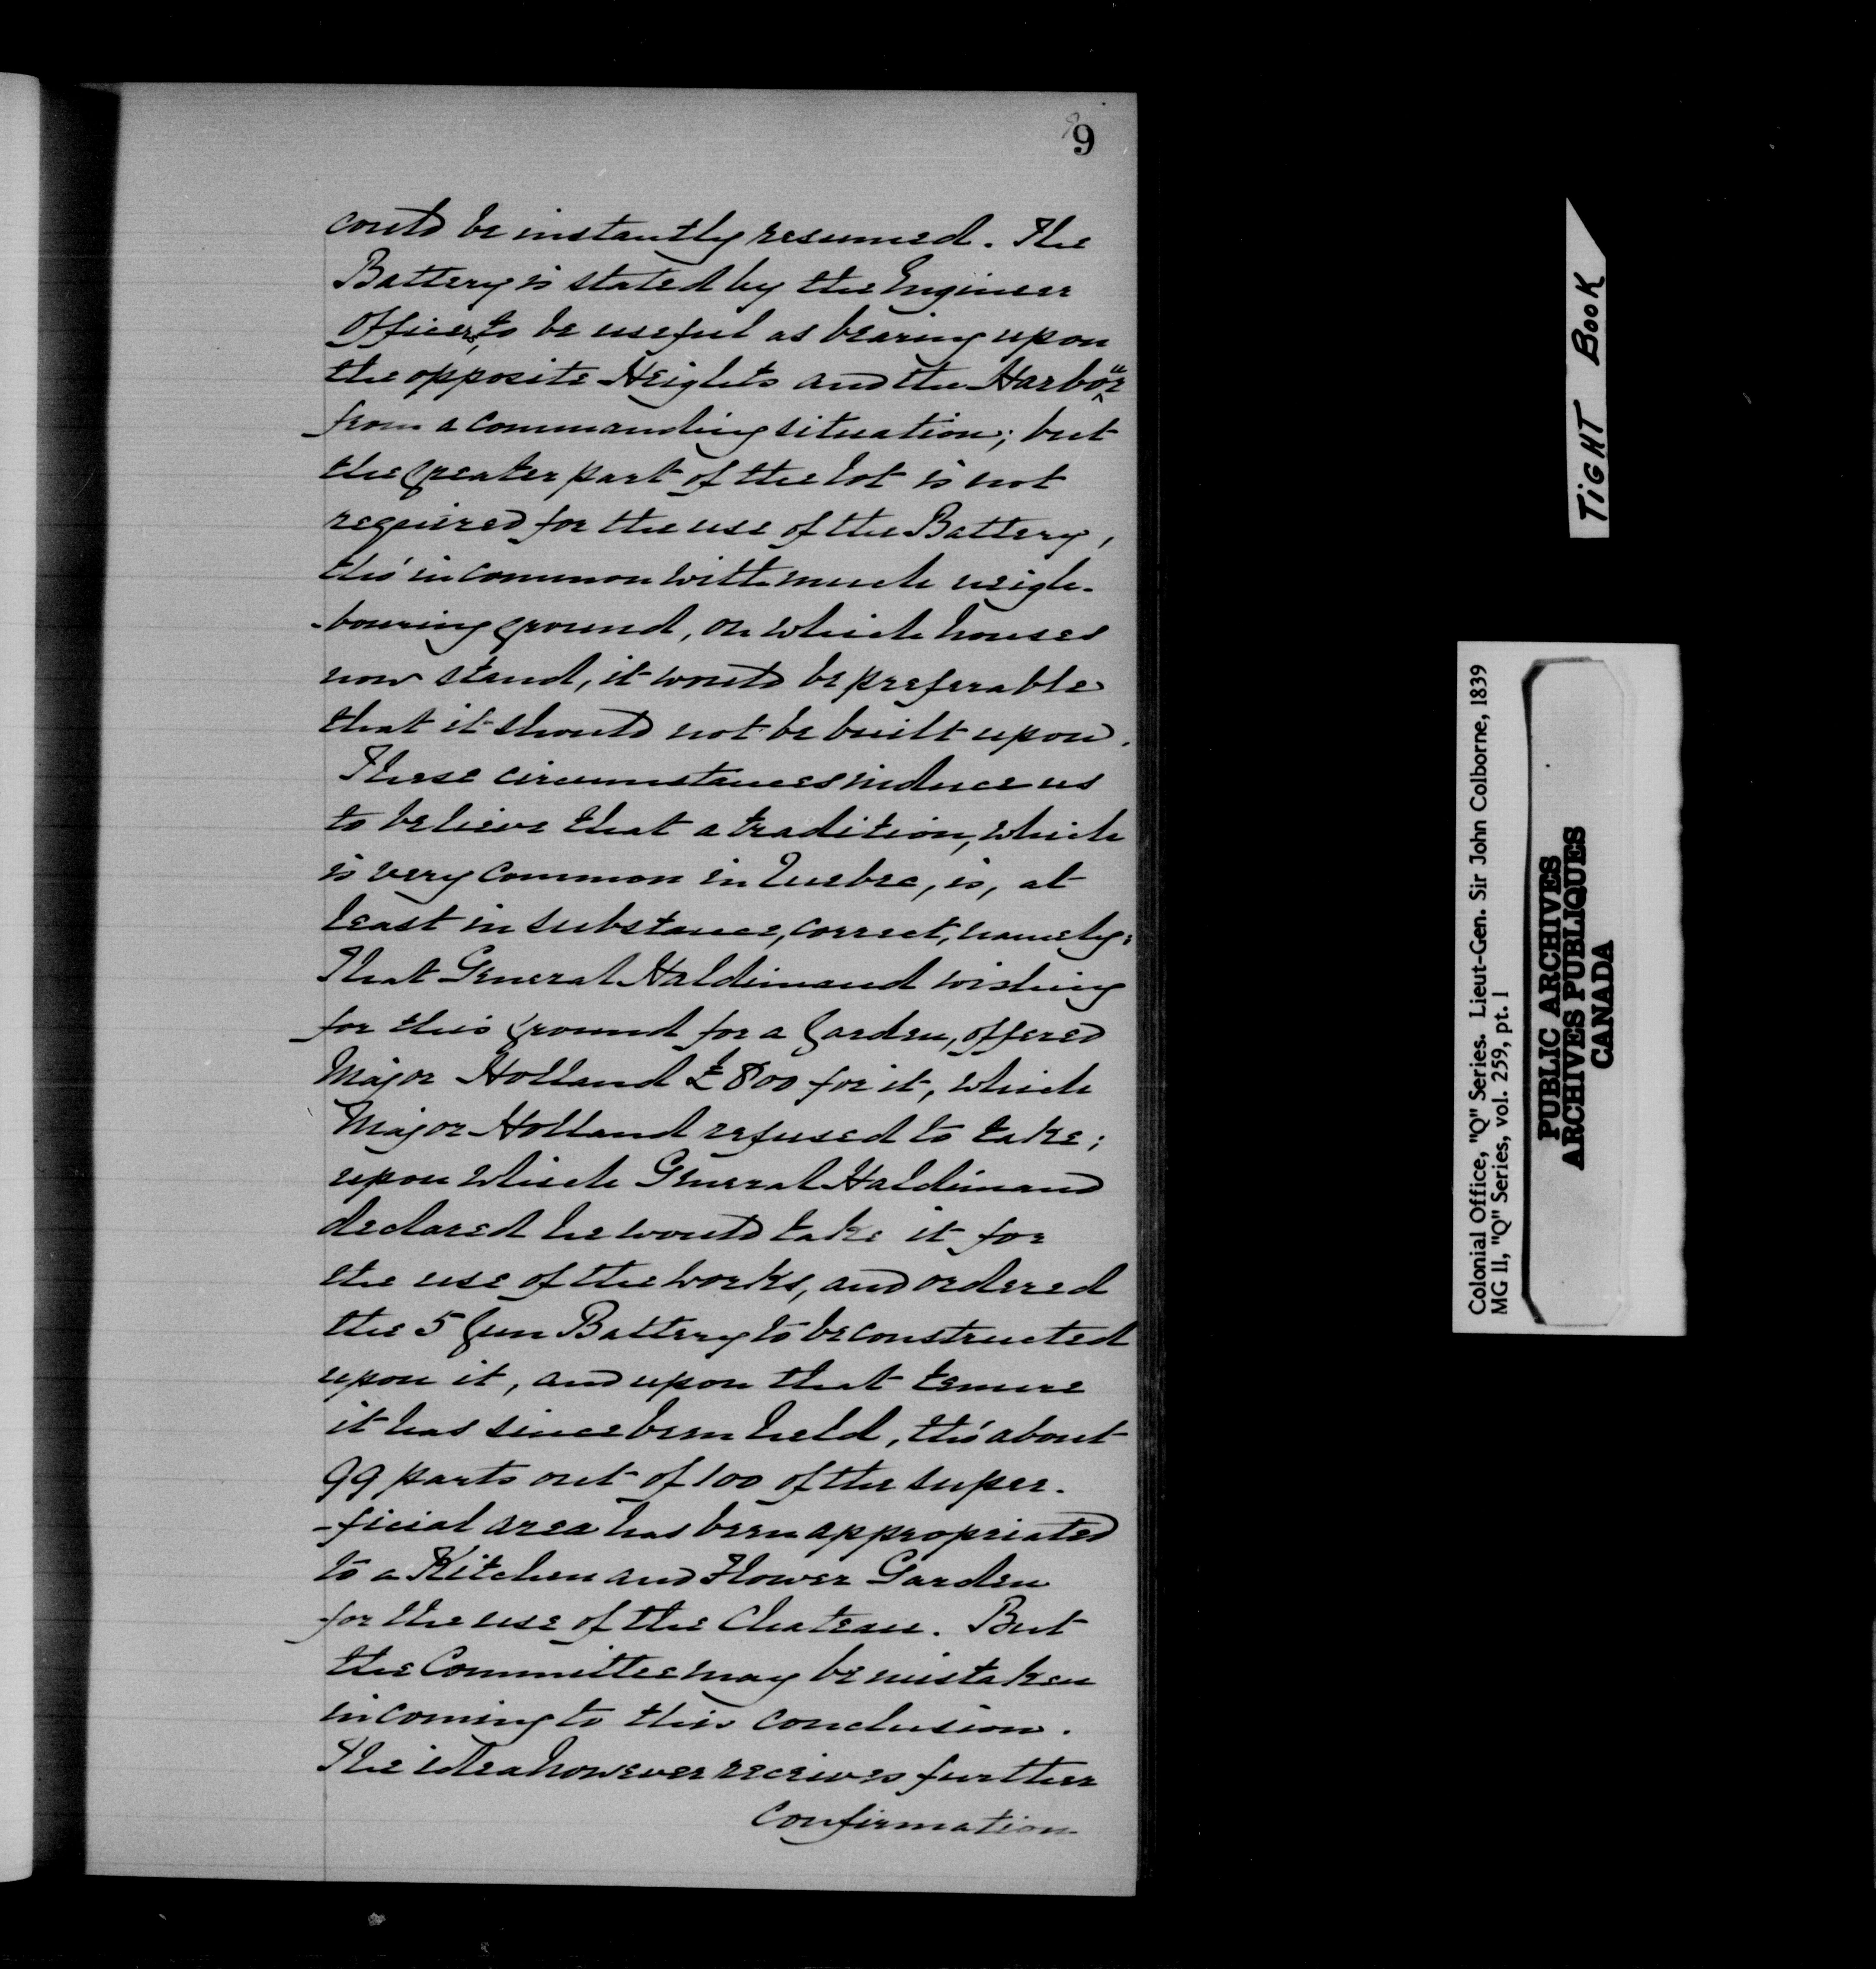 9
could be instantly resumed. The
Battery is stated by the Engineer
Officers, to be useful as bearing upon
the opposite Heights and the Harbour
from a commanding situation; but
the greater part of the lot is not
required for the use of the Battery,
tho' in common with much neigh-
-bouring ground, on which houses
now stand, it would be preferable
that it should not be built upon.
These circumstances induce us
to believe that a tradition, which
is very common in Quebec, is, at
least in substance, correct, namely:
That General Haldimand wishing
for this ground for a Garden, offered
Major Holland £800 for it, which
Major Holland refused to take;
upon which General Haldimand
declared he would take it for
the use of the works, and ordered
the 5 Gun Battery to be constructed
upon it, and upon that tenure
it has since been held, tho' about
99 parts out of 100 of the super-
-ficial area has been appropriated
to a Kitchen and Flower Garden
for the use of the Chateau. But
the Committee may be mistaken
in coming to this conclusion.
The idea however receives further
confirmation
TIGHT BOOK
Colonial Office, "Q" Series. Lieut-Gen. Sir John Colborne, 1839
MG 11, "Q" Series, vol. 259, pt. 1
PUBLIC ARCHIVES
ARCHIVES PUBLIQUES
CANADA